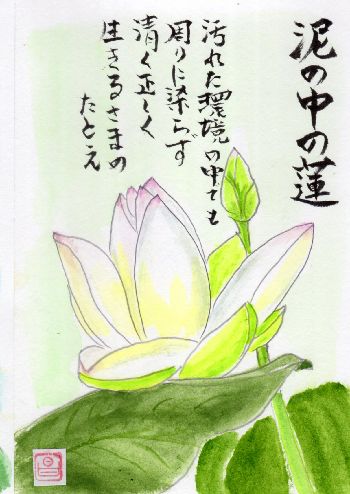 泥の中の蓮
汚れた環境の中でも
周りに染らず
清く正しく
生きるさまの
たとえ